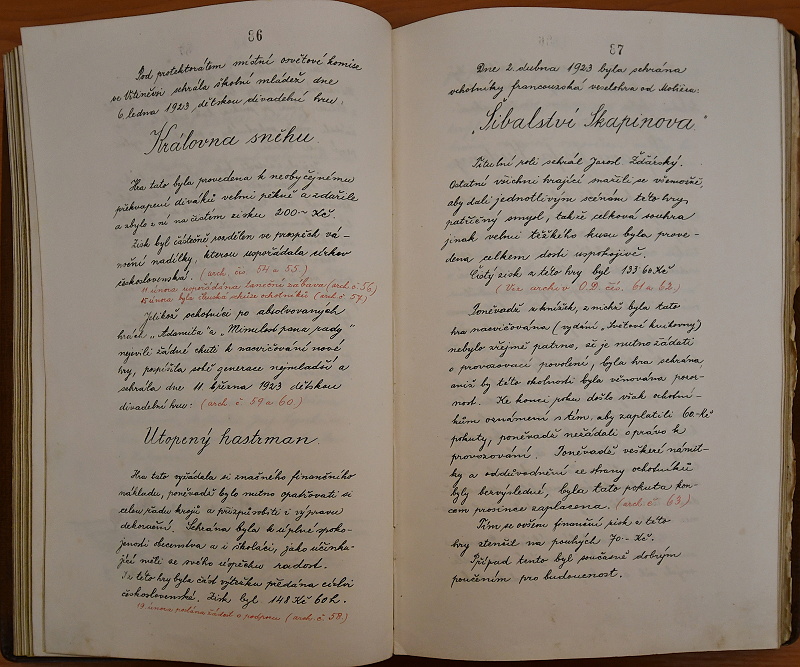 86
Pod protektorátem místní osvětové komise
ve Vtiněvsi sehrála školní mládež dne
6. ledna 1923 dětskou divadelní hru:
Královna sněhu.
Hra tato byla provedena k neobyčejnému
překvapení diváků velmi pěkně a zdařile
a zbylo z ní na čistém zisku 200~ Kč.
Zisk byl částečně rozdělen ve prospěch vá-
noční nadílky, kterou uspořádala církev
československá. (arch. čís. 54 a 55.)
11 února uspořádána taneční zábava (arch. č. 56)
15 února byla schůze ochotníků (arch. č. 57.)
Jelikož ochotníci po absolvovaných
hrách „Adamita" a „Minulost pana rady"
nejevili žádné chuti k nacvičování nové
hry, pospíšila sobě generace nejmladší a
sehrála dne 11. března 1923 dětskou
divadelní hru: (arch. č. 59 a 60.)
Utopený hastrman.
Hra tato vyžádala si značného finančního
nákladu, poněvadž bylo nutno opatřovati si
celou řadu krojů a přizpůsobiti i výpravu
dekorační. Sehrána byla k úplné spoko-
jenosti obecenstva a i školáci, jako účinku-
jící měli ze svého úspěchu radost.
Z této hry byla část výtěžku předána církvi
československé. Zisk byl 148 Kč 60 h.
19 února podána žádost o podporu (arch. č. 58.)
87
Dne 2. dubna 1923 byla sehrána
ochotníky francouzská veselohra od Moliéra:
„Šibalství Skapinova."
Titulní roli sehrál Jarosl. Žďárský.
Ostatní všichni hrající snažili se všemožně,
aby dali jednotlivým scénám této hry
patřičný smysl, takže celková souhra
jinak velmi těžkého kusu byla prove-
dena celkem dosti uspokojivě.
Čistý zisk z této hry byl 133 60 Kč
(Viz archiv O.D. čís. 61 a 62.)
Poněvadž z knížek, z nichž byla tato
hra nacvičována (vydání „Světové knihovny")
nebylo zřejmě patrno, že je nutno žádati
o provozovací povolení, byla hra sehrána,
aniž by této okolnosti byla věnována pozor-
nost. Ke konci roku došlo však ochotní-
kům oznámení s tím, aby zaplatili 60.- Kč
pokuty, poněvadž nežádali o právo k
provozování. Poněvadž veškeré námit-
ky a odůvodnění se strany ochotníků
byly bezvýsledné, byla tato pokuta kon-
cem prosince zaplacena. (arch. č. 63.)
Tím se ovšem finanční zisk z této
hry ztenčil na pouhých 70.- Kč.
Případ tento byl současně dobrým
poučením pro budoucnost.